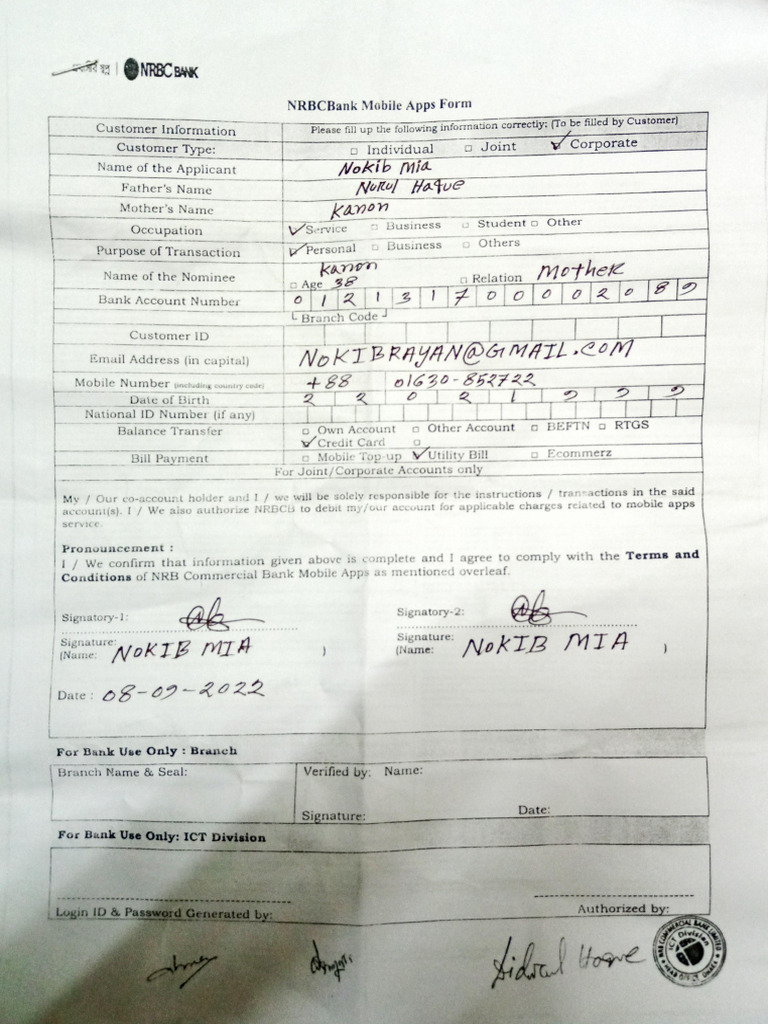 NRBC BANK
NRBCBank Mobile Apps Form
Customer Information Please fill up the following information correctly: (To be filled by Customer)
Customer Type: Individual Joint Corporate
Name of the Applicant Nokib Mia
Father's Name Nurul Haque
Mother's Name Kanon
Occupation Service Business Student Other
Purpose of Transaction Personal Business Others
Name of the Nominee Kanon
Age 38 Relation Mother
Bank Account Number 0 1 2 1 3 1 7 0 0 0 0 2 0 8 9
Branch Code
Customer ID
Email Address (in capital) NOKIBRAYAN@GMAIL.COM
Mobile Number (including country code) +88 01630-852722
Date of Birth 2 2 0 2 1 9 9 9
National ID Number (if any)
Balance Transfer Own Account Other Account BEFTN RTGS
Credit Card
Bill Payment Mobile Top-up Utility Bill Ecommerz
For Joint/Corporate Accounts only
My / Our co-account holder and I / we will be solely responsible for the instructions / transactions in the said
account(s). I / We also authorize NRBCB to debit my/our account for applicable charges related to mobile apps
service.
Pronouncement :
I / We confirm that information given above is complete and I agree to comply with the Terms and
Conditions of NRB Commercial Bank Mobile Apps as mentioned overleaf.
Signatory-1: Signatory-2:
Signature: Signature:
(Name: NOKIB MIA ) (Name: NOKIB MIA )
Date : 08-09-2022
For Bank Use Only : Branch
Branch Name & Seal: Verified by: Name:
Signature: Date:
For Bank Use Only: ICT Division
Login ID & Password Generated by: Authorized by:
NRB COMMERCIAL BANK LIMITED
ICT Division
HEAD OFFICE, DHAKA